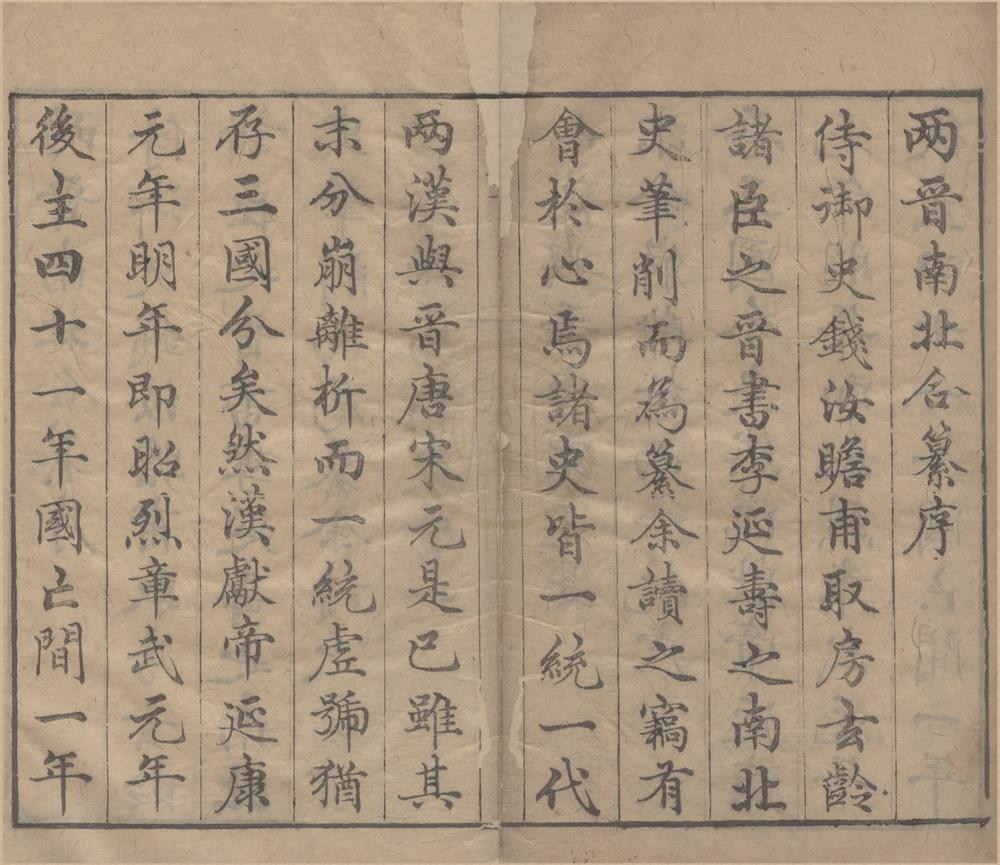 两晋南北合纂序
侍御史錢汝瞻甫取房玄齡
諸臣之晋書李延壽之南北
史筆削而為纂余讀之竊有
會於心焉諸史皆一統一代
两漢與晋唐宋元是已雖其
末分崩離析而一統虛號猶
存三國分矣然漢獻帝延康
元年明年即昭烈章武元年
後主四十一年國亡間一年